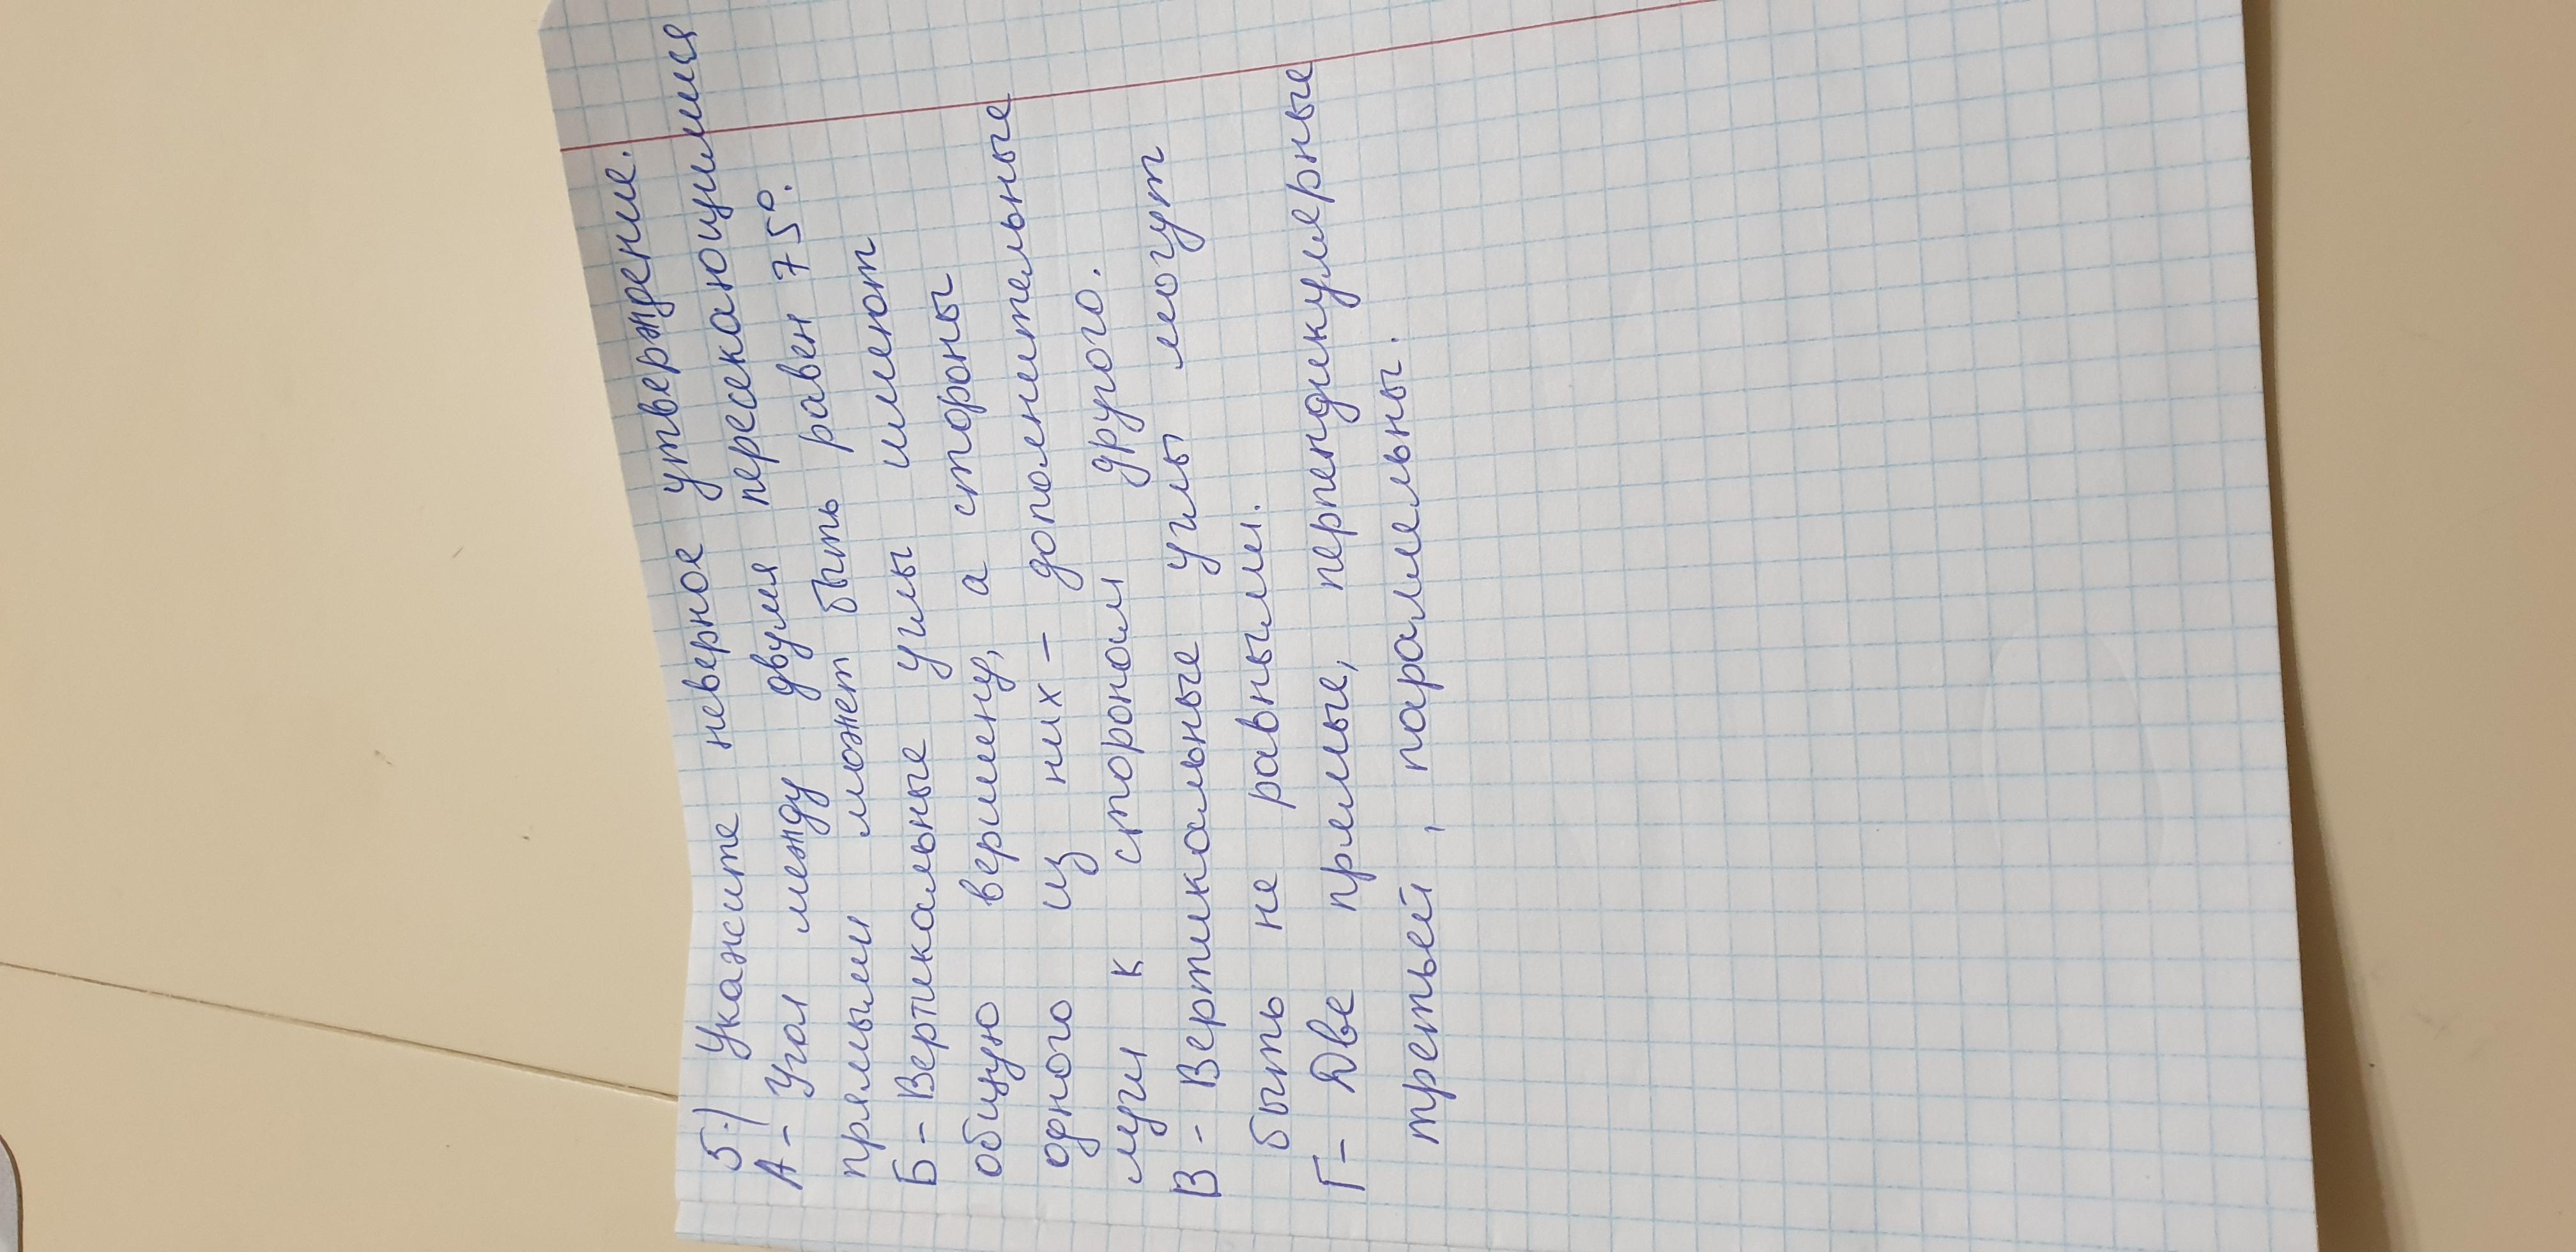 5.) Укажите неверное утверждение.
А - Угол между двумя пересекающимися
прямыми может быть равен 75°.
Б - Вертикальные углы имеют
общую вершину, а стороны
одного из них - дополнительные
лучи к сторонам другого.
В - Вертикальные углы могут
быть не равными.
Г - Две прямые, перпендикулярные
третьей, параллельны.